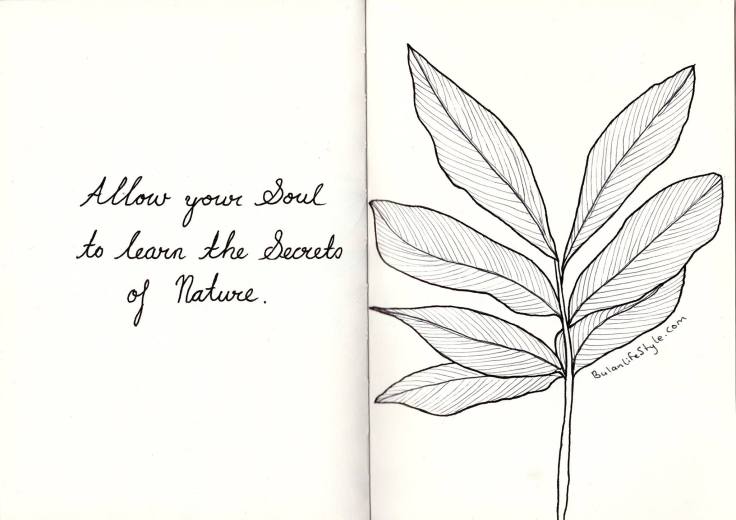 Allow your Soul
to learn the Secrets
of Nature.
BulanLifeStyle.com